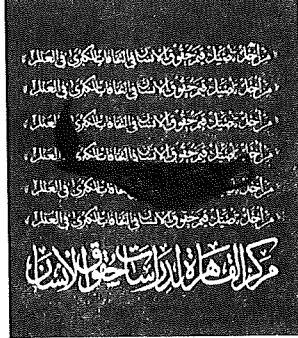 من أجل قيم حقوق الانسان في الثقافات الكبرى في العالم
من أجل قيم حقوق الانسان في الثقافات الكبرى في العالم
من أجل قيم حقوق الانسان في الثقافات الكبرى في العالم
من أجل قيم حقوق الانسان في الثقافات الكبرى في العالم
من أجل الكبرى في العالم
من أجل قيم حقوق الانسان في الثقافات الكبرى في العالم
مركز القاهرة لدراسات حقوق الانسان